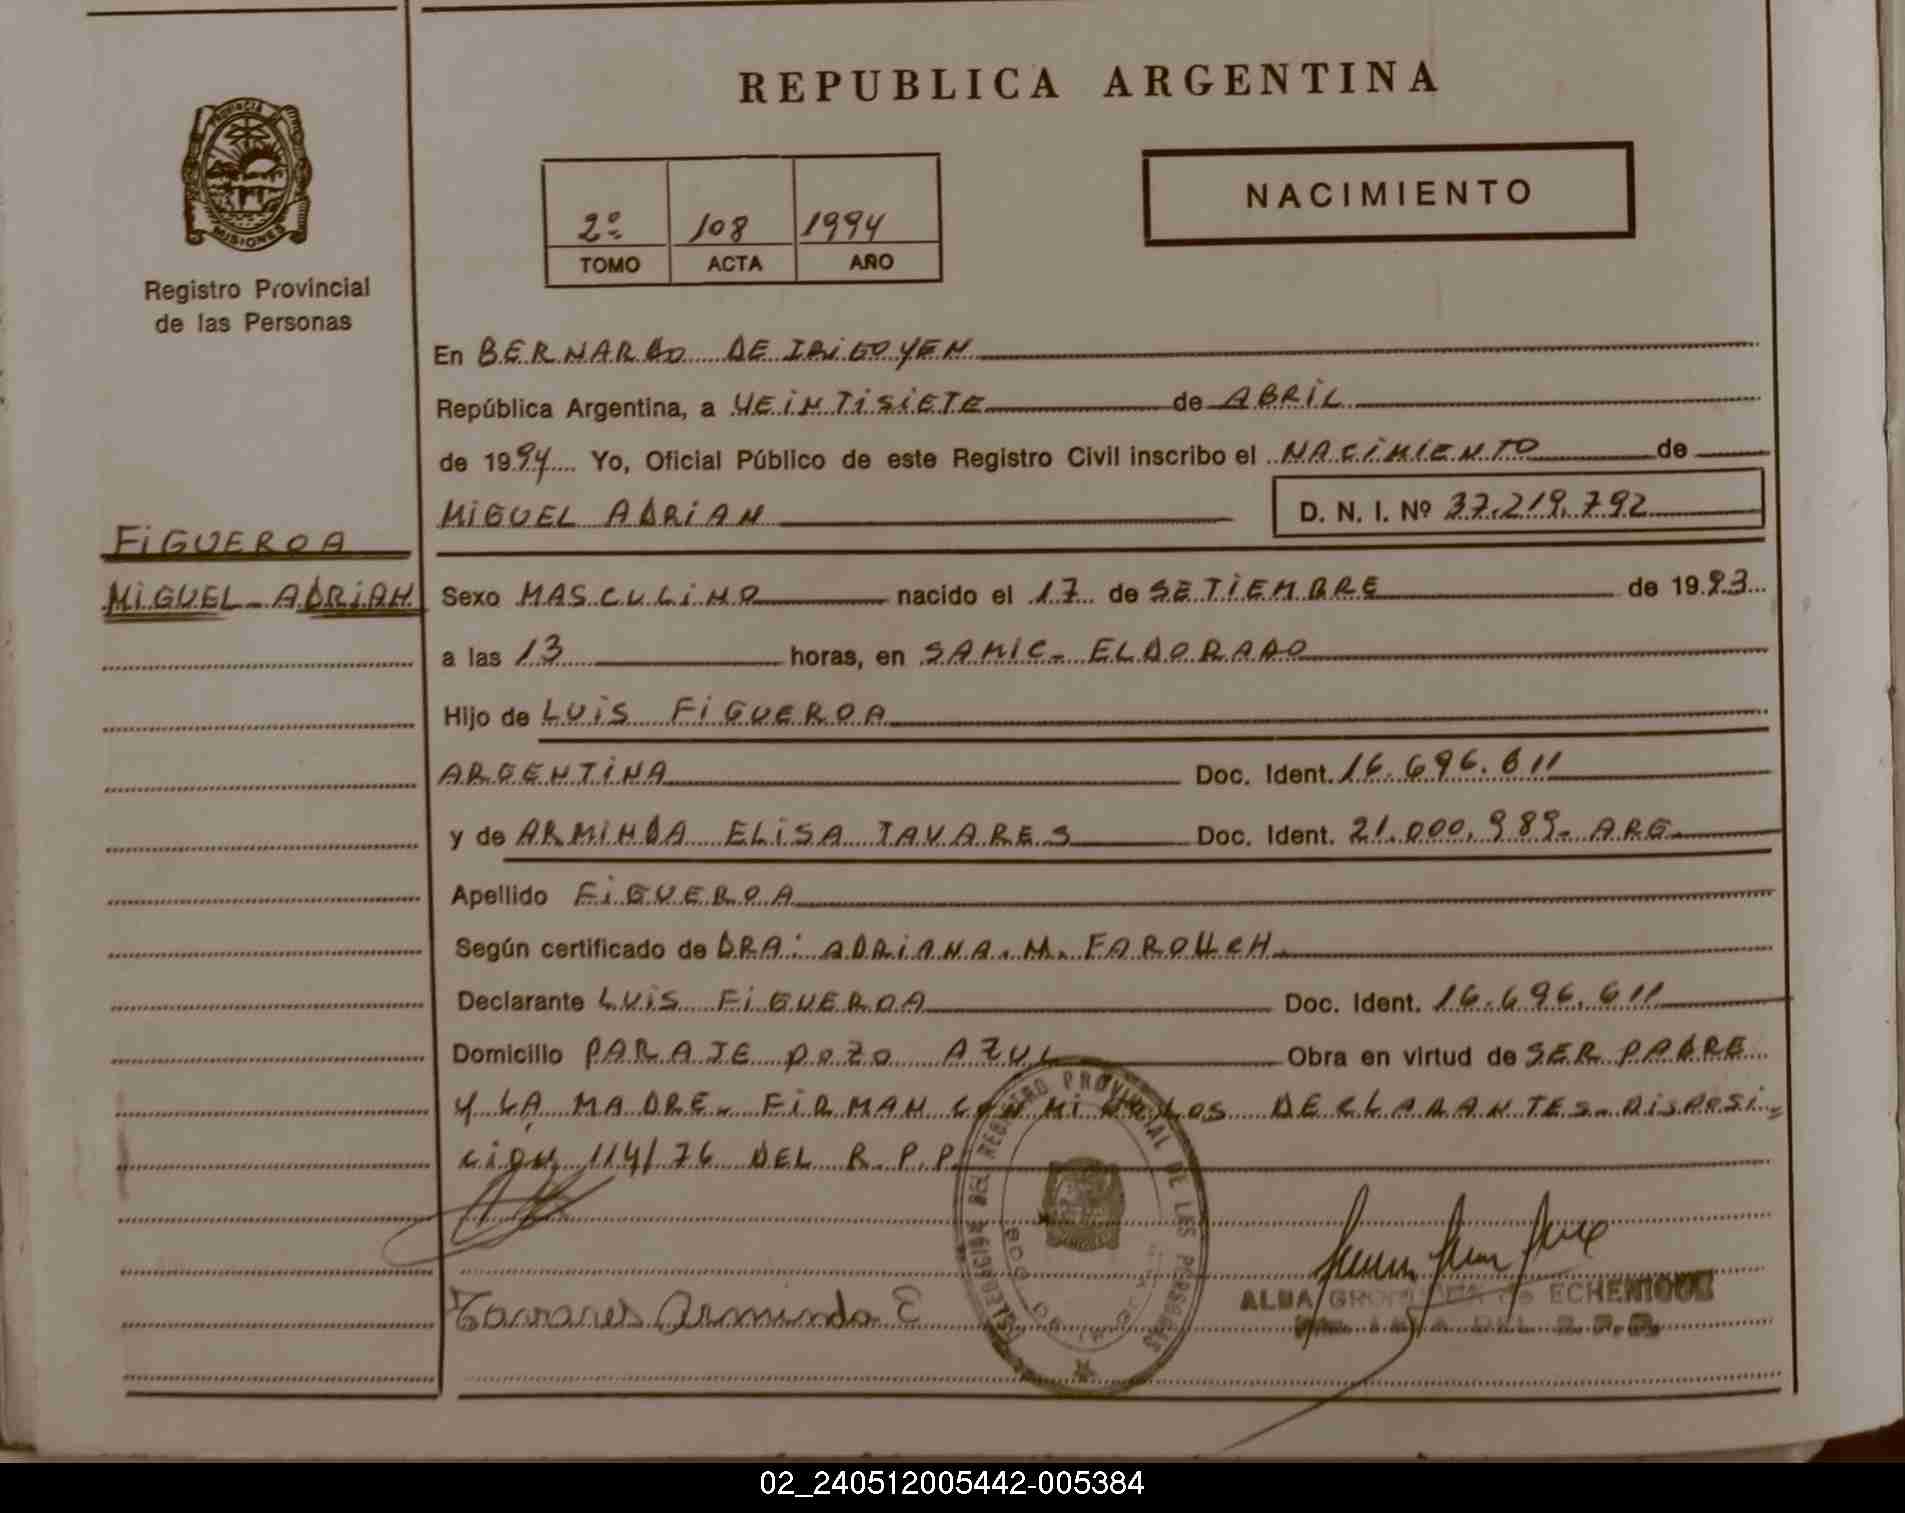 REPUBLICA ARGENTINA
PROVINCIA D MISIONES
Registro Provincial
de las Personas
2º 108 1994
TOMO ACTA AÑO
NACIMIENTO
En BERNARDO DE IRIGOYEN
República Argentina, a VEINTISIETE de ABRIL
de 1994 Yo, Oficial Público de este Registro Civil inscribo el NACIMIENTO de
MIGUEL ADRIAN D. N. I. Nº 37.219.792
FIGUEROA
MIGUEL-ADRIAN
Sexo MASCULINO nacido el 17 de SETIEMBRE de 1993
a las 13 horas, en SAMIC- ELDORADO
Hijo de LUIS FIGUEROA
ARGENTINA Doc. Ident. 16.696.611
y de ARMINDA ELISA TAVARES Doc. Ident. 21.000.989- ARG
Apellido FIGUEROA
Según certificado de DRA: ADRIANA. M.
Declarante LUIS FIGUEROA Doc. Ident. 16.696.611
Domicilio PARAJE POZO AZUL Obra en virtud de SER PADRE
Y LA MADRE- FIRMAN CON MI LOS DECLARANTES- DISPOSI-
CION 114/76 DEL R.P.P.
Tavares Arminda E
REGISTRO PROVINCIAL DE LES PERSONAS
ALBA de ECHENIQUE
DEL R.P.P.
02_240512005442-005384